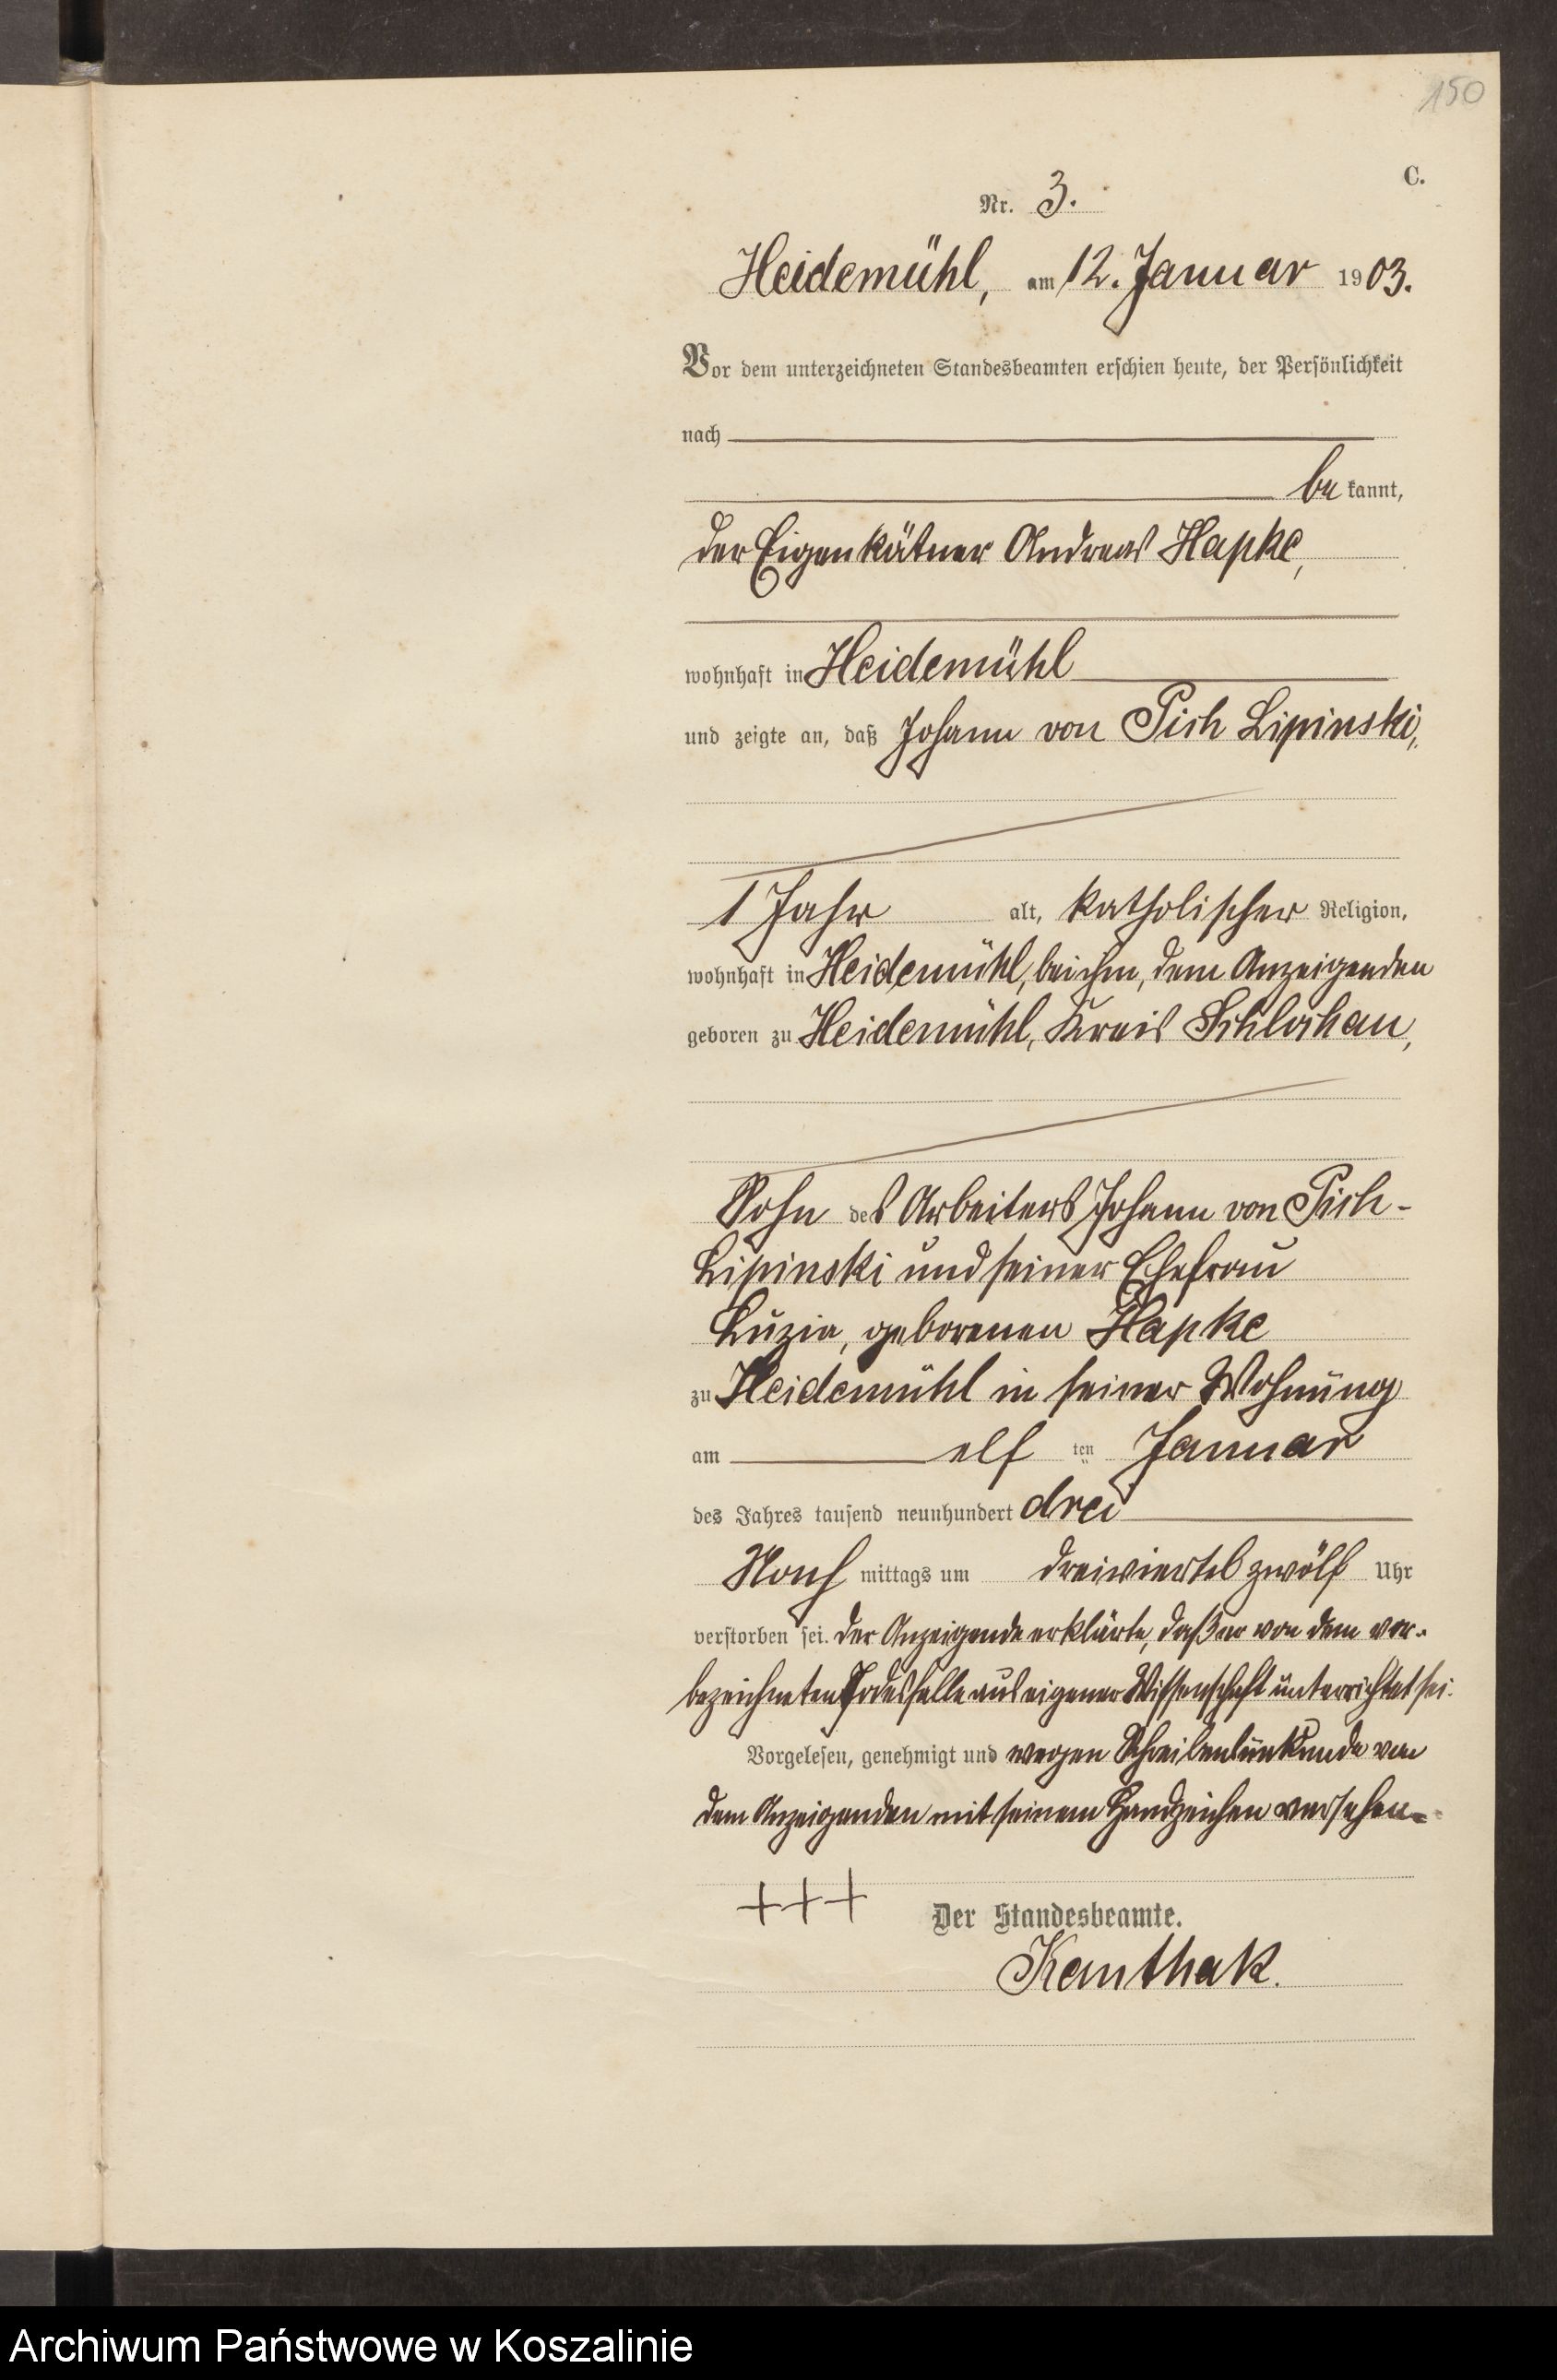 150
C.
Nr. 3.
Heidemühl, am 12. Januar 1903.
Vor dem unterzeichneten Standesbeamten erschien heute, der Persönlichkeit
nach
be kannt,
der Eigenkätner Andreas Hapke,
wohnhaft in Heidemühl
und zeigte an, daß Johann von Pich Lipinski,
1 Jahr alt, katholischer Religion,
wohnhaft in Heidemühl, bei ihm, dem Anzeigenden
geboren zu Heidemühl, Kreis Schlochau,
Sohn des Arbeiters Johann von Pich-
Lipinski und seiner Ehefrau
Luzia, geborenen Hapke
zu Heidemühl in seiner Wohnung
am elf ten Januar
des Jahres tausend neunhundert drei
Nach mittags um dreiviertel zwölf Uhr
verstorben sei. Der Anzeigende erklärte, daß er von dem vor-
bezeichneten Todesfalle aus eigener Wissenschaft unterrichtet sei.
Vorgelesen, genehmigt und wegen Schreibensunkunde von
dem Anzeigenden mit seinem Handzeichen versehen.
+++
Der Standesbeamte.
Kanthak.
Archiwum Państwowe w Koszalinie